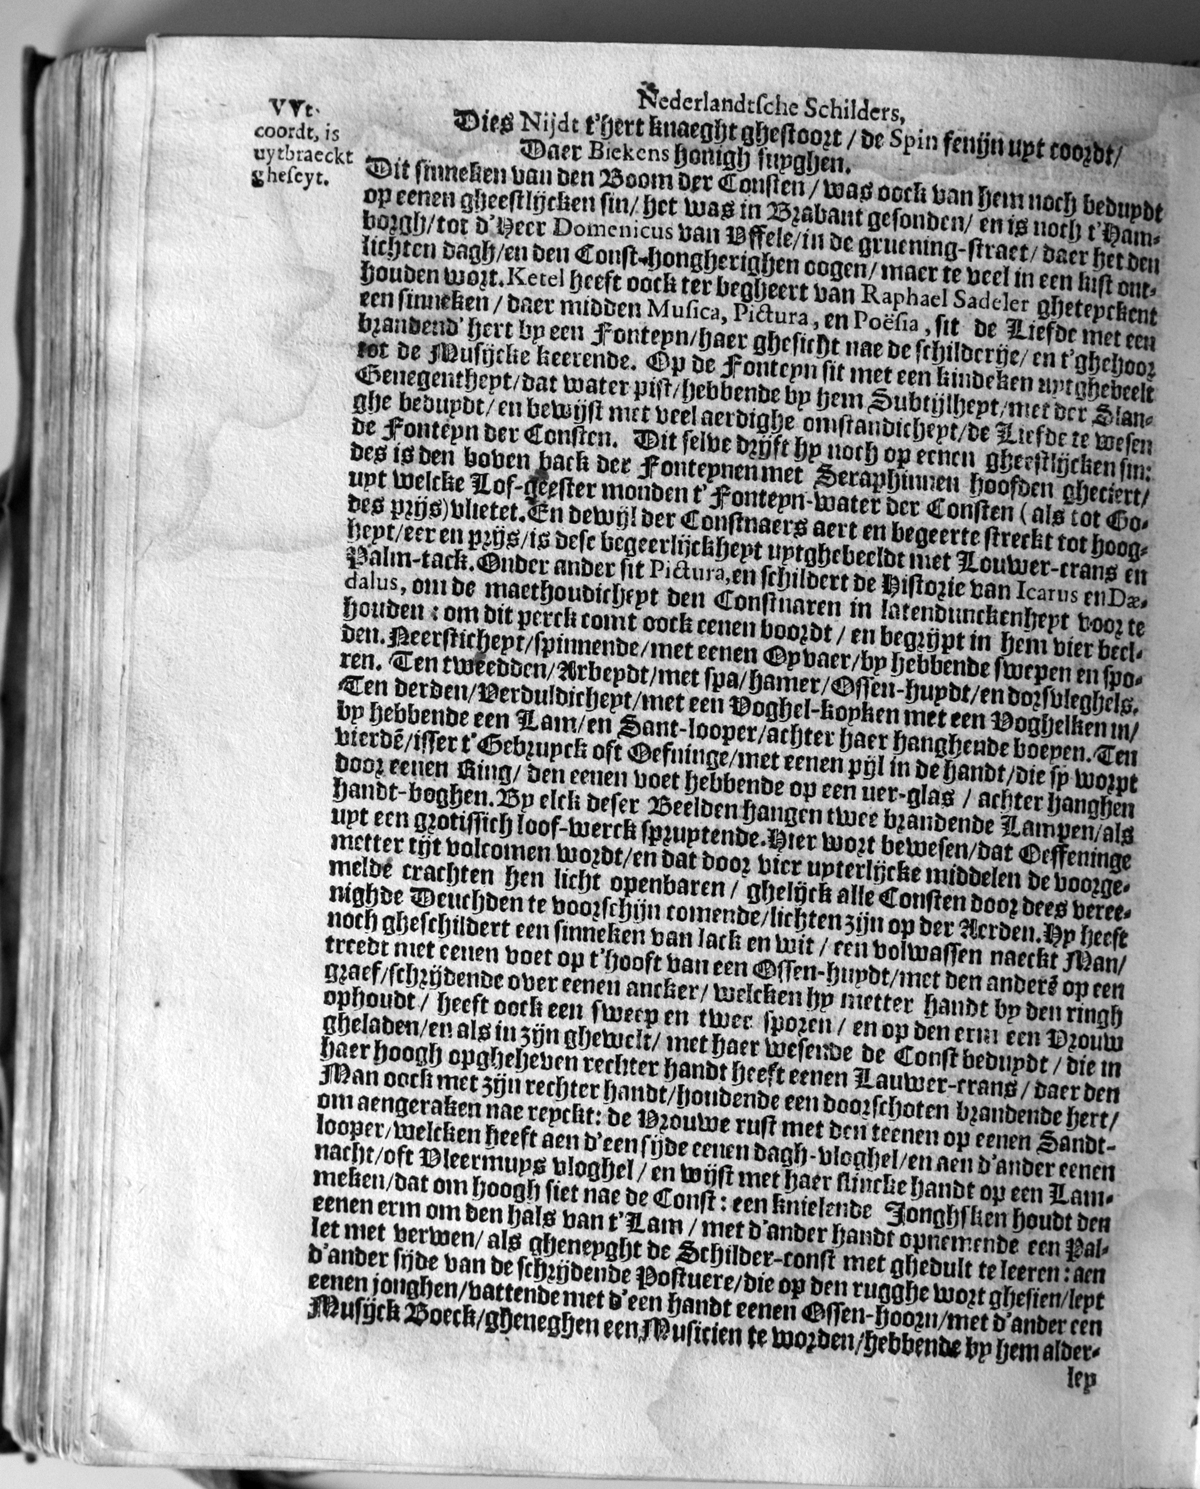 Nederlandtsche Schilders,
VVt-
coordt, is
uytbraeckt
gheseyt.
Dies Nijdt t'hert knaeght ghestoort / de Spin fenijn uyt coordt/
Daer Biekens honigh suyghen.
Dit sinneken van den Boom der Consten / was oock van hem noch beduydt
op eenen gheestlijcken sin/ het was in Brabant gesonden/ en is noch t'Ham-
borgh/tot d'Heer Domenicus van Uffele/in de gruening-straet/ daer het den
lichten dagh/en den Const-hongherighen oogen/ maer te veel in een kist ont-
houden wort. Ketel heeft oock ter begheert van Raphael Sadeler gheteyckent
een sinneken / daer midden Musica, Pictura, en Poësia, sit de Liefde met een
brandend' hert by een Fonteyn/haer ghesicht nae de schilderije/ en t'ghehoor
tot de Musijcke keerende. Op de Fonteyn sit met een kindeken uytghebeelt
Genegentheyt/dat water pist/hebbende by hem Subtijlheyt/met der Slan-
ghe beduydt/ en bewijst met veel aerdighe omstandicheyt/de Liefde te wesen
de Fonteyn der Consten. Dit selve drijft hy noch op eenen gheestlijcken sin:
des is den boven back der Fonteynen met Seraphinnen hoofden gheciert/
uyt welcke Lof-geester monden t'Fonteyn-water der Consten (als tot Go-
des prijs) vlietet. En dewijl der Constnaers aert en begeerte streckt tot hoog-
heyt/eer en prijs/is dese begeerlijckheyt uytghebeeldt met Louwer-crans en
Palm-tack. Onder ander sit Pictura, en schildert de Historie van Icarus en Dæ-
dalus, om de maethoudicheyt den Constnaren in latendunckenheyt voor te
houden : om dit perck comt oock eenen boordt / en begrijpt in hem vier beel-
den. Neersticheyt/spinnende/met eenen Opvaer/by hebbende sweepen en spo-
ren. Ten tweedden/Arbeydt/met spa/hamer/Ossen-huydt/en dorsvleghels.
Ten derden/Verduldicheyt/met een Voghel-koyken met een Voghelken in/
by hebbende een Lam/en Sant-looper/achter haer hanghende boeyen. Ten
vierdē/isser t'Gebruyck oft Oefninge/met eenen pijl in de handt/die sy worpt
door eenen Ring/ den eenen voet hebbende op een uer-glas / achter hanghen
handt-boghen. By elck deser Beelden hangen twee brandende Lampen/als
uyt een grotissich loof-werck spruytende. Hier wort bewesen/dat Oeffeninge
metter tijt volcomen wordt/en dat door vier uyterlijcke middelen de voorge-
meldē crachten hen licht openbaren / ghelijck alle Consten door dees veree-
nighde Deuchden te voorschijn comende/lichten zijn op der Aerden. Hy heeft
noch gheschildert een sinneken van lack en wit / een volwassen naeckt Man/
treedt met eenen voet op t'hooft van een Ossen-huydt/met den anderē op een
graef/schrijdende over eenen ancker/ welcken hy metter handt by den ringh
ophoudt / heeft oock een sweep en twee sporen / en op den erm een Vrouw
gheladen/en als in zijn ghewelt/ met haer wesende de Const beduydt / die in
haer hoogh opgheheven rechter handt heeft eenen Lauwer-crans / daer den
Man oock met zijn rechter handt/houdende een doorschoten brandende hert/
om aengeraken nae reyckt: de Vrouwe rust met den teenen op eenen Sandt-
looper/welcken heeft aen d'een sijde eenen dagh-vloghel/en aen d'ander eenen
nacht/oft Vleermuys vloghel / en wijst met haer slincke handt op een Lam-
meken/dat om hoogh siet nae de Const : een knielende Jonghsken houdt den
eenen erm om den hals van t'Lam / met d'ander handt opnemende een Pal-
let met verwen/ als gheneyght de Schilder-const met ghedult te leeren : aen
d'ander sijde van de schrijdende Postuere/die op den rugghe wort ghesien/leyt
eenen jonghen/vattende met d'een handt eenen Ossen-hoorn/met d'ander een
Musijck Boeck/gheneghen een Musicien te worden/hebbende by hem alder-
ley